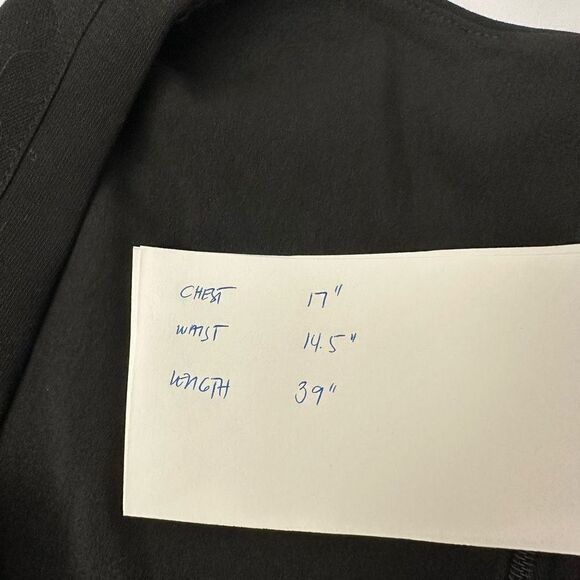 CHEST 17"
WAIST 14.5"
LENGTH 39"